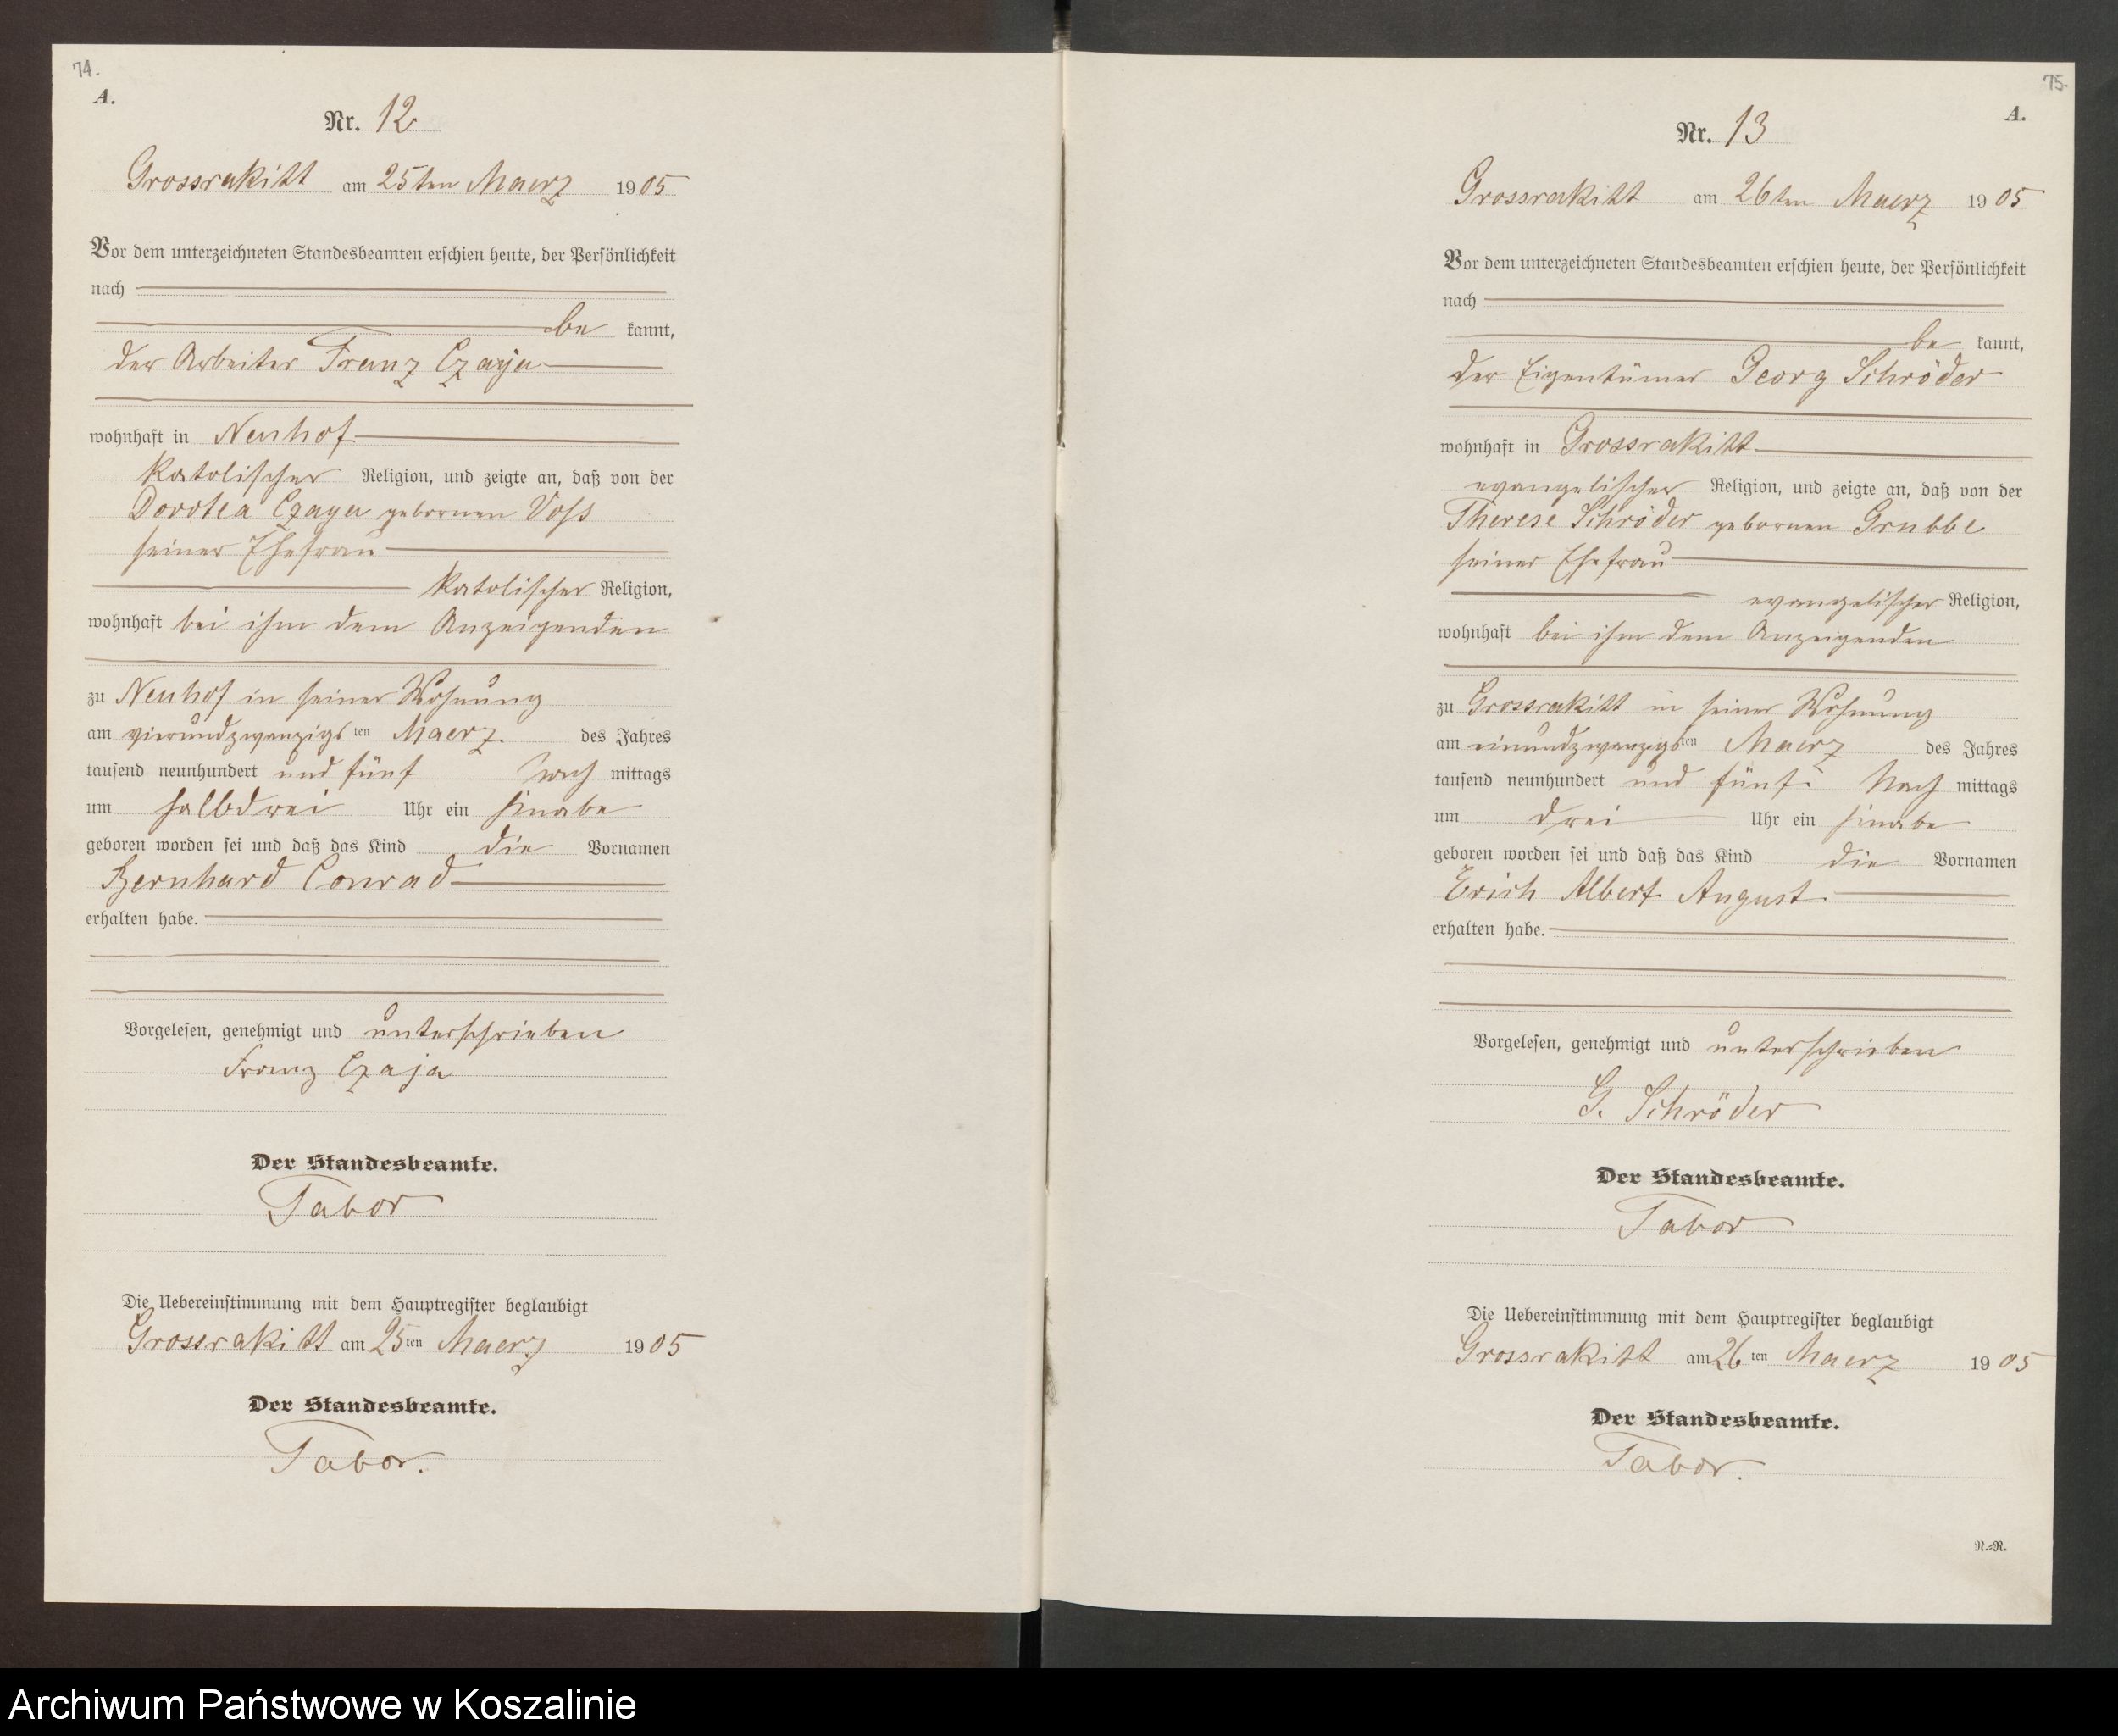 74.
A.
Nr. 12
Grossrakitt am 25ten Maerz 1905
Vor dem unterzeichneten Standesbeamten erschien heute, der Persönlichkeit
nach
be kannt,
der Arbeiter Franz Czaja
wohnhaft in Neuhof
katolischer Religion, und zeigte an, daß von der
Dorotea Czaja gebornen Voss
seiner Ehefrau
katolischer Religion,
wohnhaft bei ihm dem Anzeigenden
zu Neuhof in seiner Wohnung
am vierundzwanzigsten Maerz des Jahres
tausend neunhundert und fünf Nach mittags
um halbdrei Uhr ein Knabe
geboren worden sei und daß das Kind die Vornamen
Bernhard Conrad
erhalten habe.
Vorgelesen, genehmigt und unterschrieben
Franz Czaja
Der Standesbeamte.
Tabor
Die Uebereinstimmung mit dem Hauptregister beglaubigt
Grossrakitt am 25ten Maerz 1905
Der Standesbeamte.
Tabor.
75.
A.
Nr. 13
Grossrakitt am 26ten Maerz 1905
Vor dem unterzeichneten Standesbeamten erschien heute, der Persönlichkeit
nach
be kannt,
der Eigentümer Georg Schröder
wohnhaft in Grossrakitt
evangelischer Religion, und zeigte an, daß von der
Therese Schröder gebornen Grubbe
seiner Ehefrau
evangelischer Religion,
wohnhaft bei ihm dem Anzeigenden
zu Grossrakitt in seiner Wohnung
am einundzwanzigsten Maerz des Jahres
tausend neunhundert und fünf Nach mittags
um drei Uhr ein Knabe
geboren worden sei und daß das Kind die Vornamen
Erich Albert August
erhalten habe.
Vorgelesen, genehmigt und unterschrieben
G. Schröder
Der Standesbeamte.
Tabor
Die Uebereinstimmung mit dem Hauptregister beglaubigt
Grossrakitt am 26ten Maerz 1905
Der Standesbeamte.
Tabor.
N.=R.
Archiwum Państwowe w Koszalinie